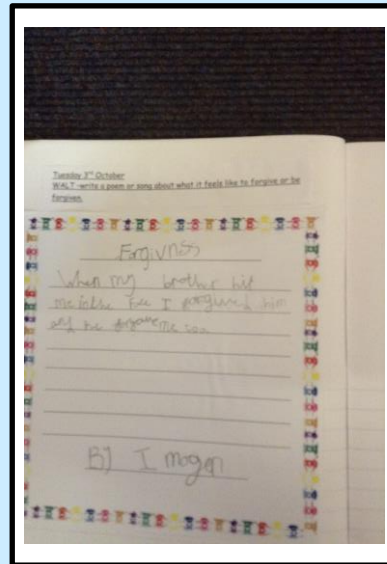 Tuesday 3rd October
WALT -write a poem or song about what it feels like to forgive or be
forgiven.
Forgivnss
When my brother hit
me I forgived him
and he forgave me too
By Imogen